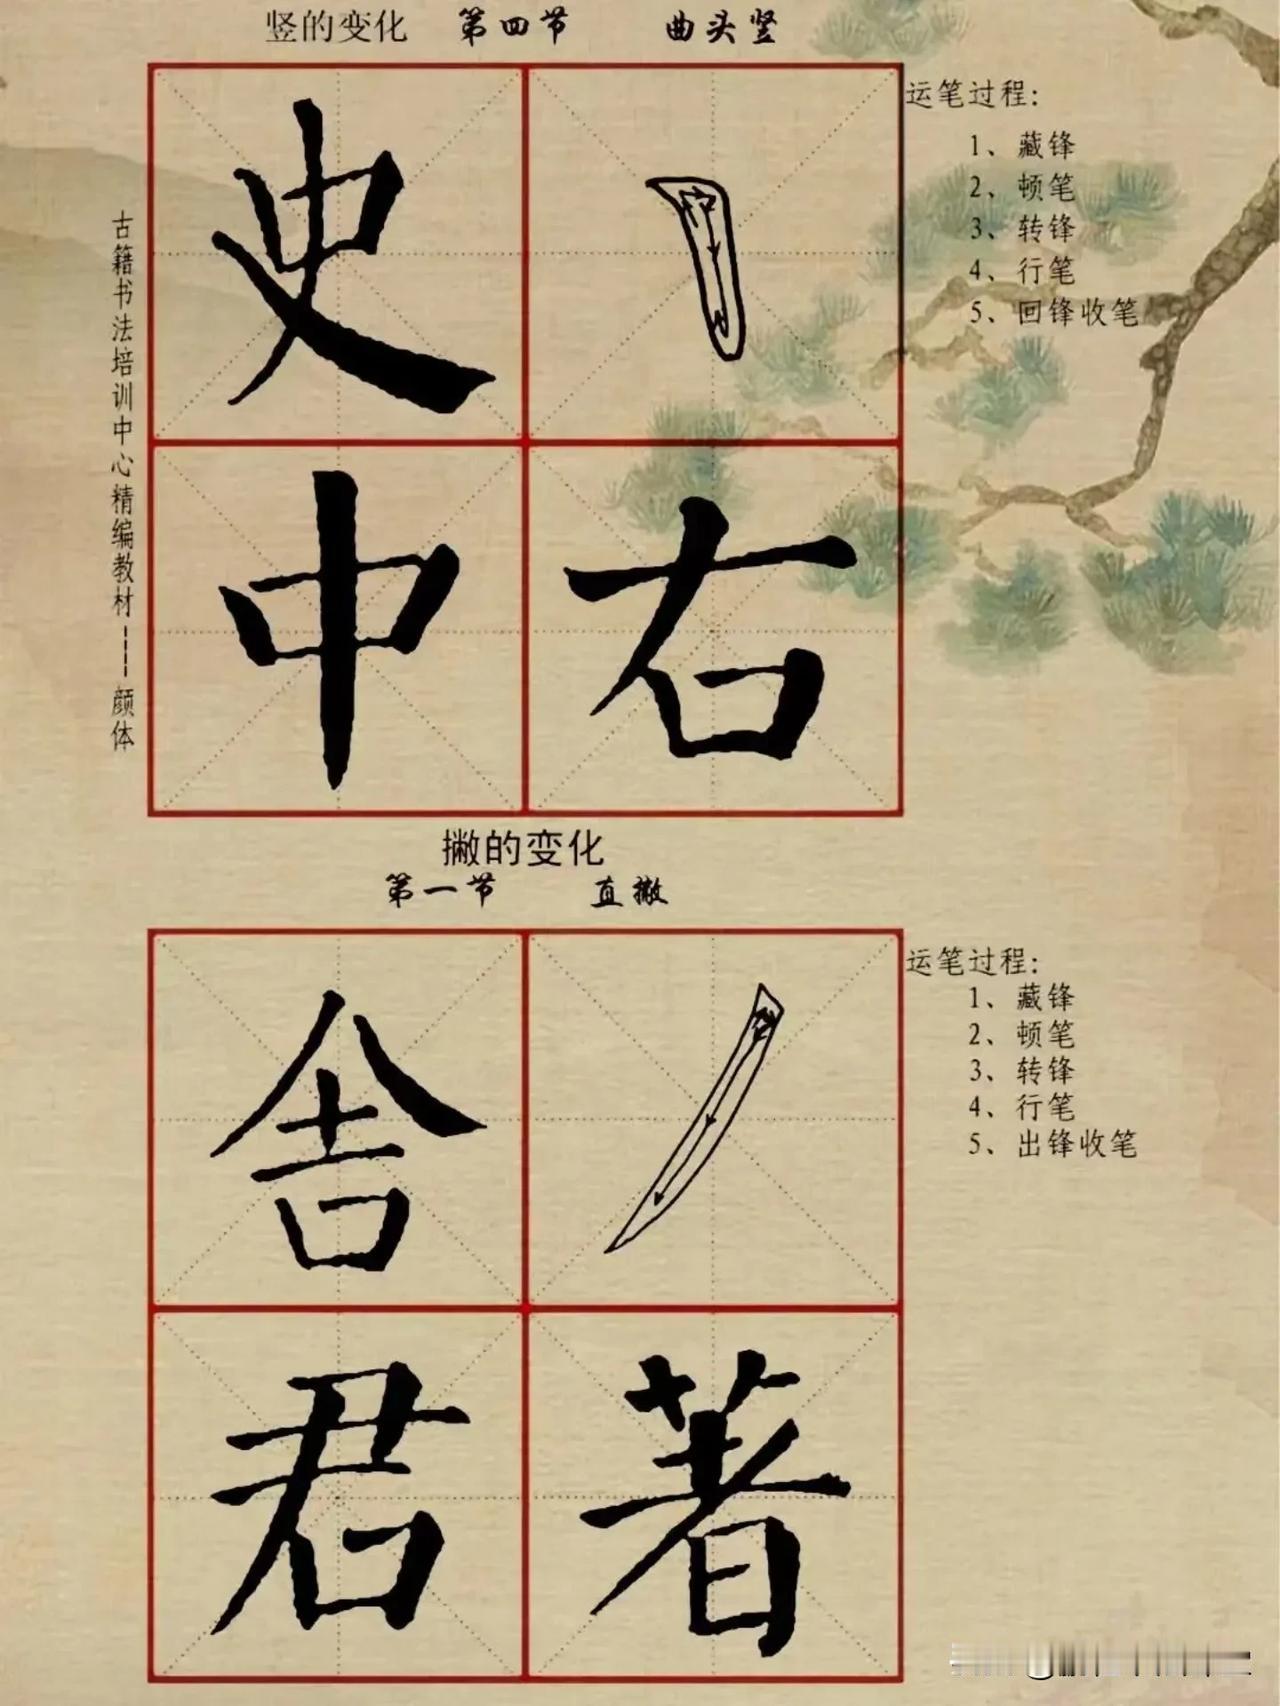 竖的变化 第四节 曲头竖
运笔过程：
1、藏锋
2、顿笔
3、转锋
4、行笔
5、回锋收笔
古籍书法培训中心精编教材---颜体
史
中 右
撇的变化
第一节 直撇
运笔过程：
1、藏锋
2、顿笔
3、转锋
4、行笔
5、出锋收笔
舍
君 著